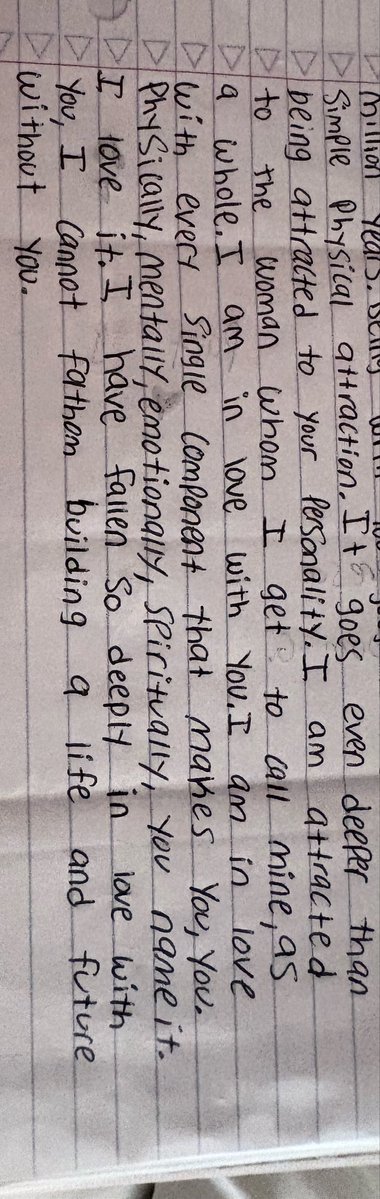 million years. Being with
Simple physical attraction. It goes even deeper than
being attracted to your personality. I am attracted
to the woman whom I get to call mine, as
a whole. I am in love with you. I am in love
with every single component that makes you, you.
Physically, mentally, emotionally, spiritually, you name it.
I love it. I have fallen so deeply in love with
you, I cannot fathom building a life and future
without you.